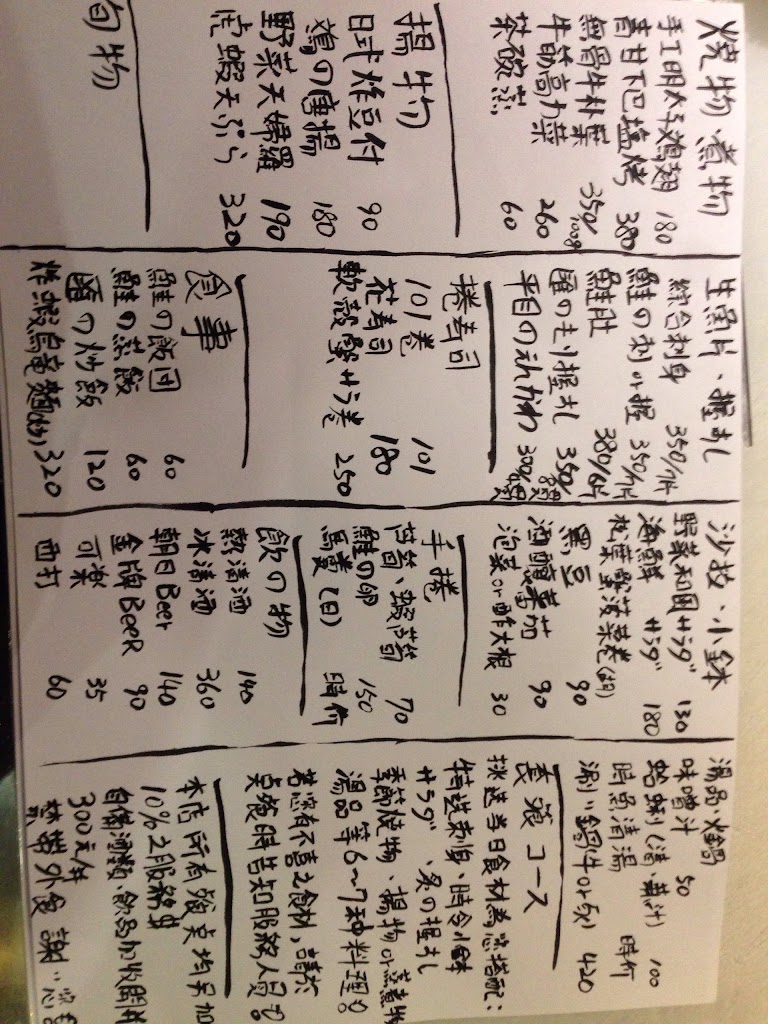 燒物、煮物
手工明太子雞翅 180
青甘下巴塩烤 380
無骨牛朴葉 350/100g
牛筋高力菜 260
茶碗蒸 60
揚物
日式炸豆付 90
鶏の唐揚 180
野菜天婦羅 190
虎蝦天ぷら 320
旬物
生魚片、握り
綜合刺身 350/7片
鮭の刺or握 350/7片
鮭肚 380/6片
の走り握り 350/
平目のえんがわ 300/
捲寿司
101卷 101
花寿司 180
軟殼蟹サラ卷 250
食事
鮭の飯団 60
鮭の茶飯 60
の炒飯 120
炸蝦烏竜麵(炒) 320
沙拉、小鉢
野菜和風サラダ 130
海鮮サラダ 180
松葉蟹菠菜卷(胡)
黑豆 90
酒釀蕃茄 90
泡菜or酢大根 30
手捲
芦筍、蝦芦筍 70
鮭の卵 150
馬糞(日) 時价
飲の物
熱清酒 140
冰清酒 360
朝日Beer 140
金牌BeeR 90
可樂 35
西打 60
湯品、火鍋
味噌汁 50
蛤蜊(清、味汁) 100
時魚清湯 時价
涮涮鍋(牛or魚) 420
套餐コース
挑選当日食材為您搭配:
特選刺身、時令小鉢
サラダ、炙の握り
季節燒物、揚物or蒸煮物
湯品等6~7種料理。
若您有不喜之食材,請於
点餐時告知服務人員。
本店所有餐点均另加
10%之服務費
自備酒類、飲品加收開瓶
300元/件
禁帶外食 謝謝您